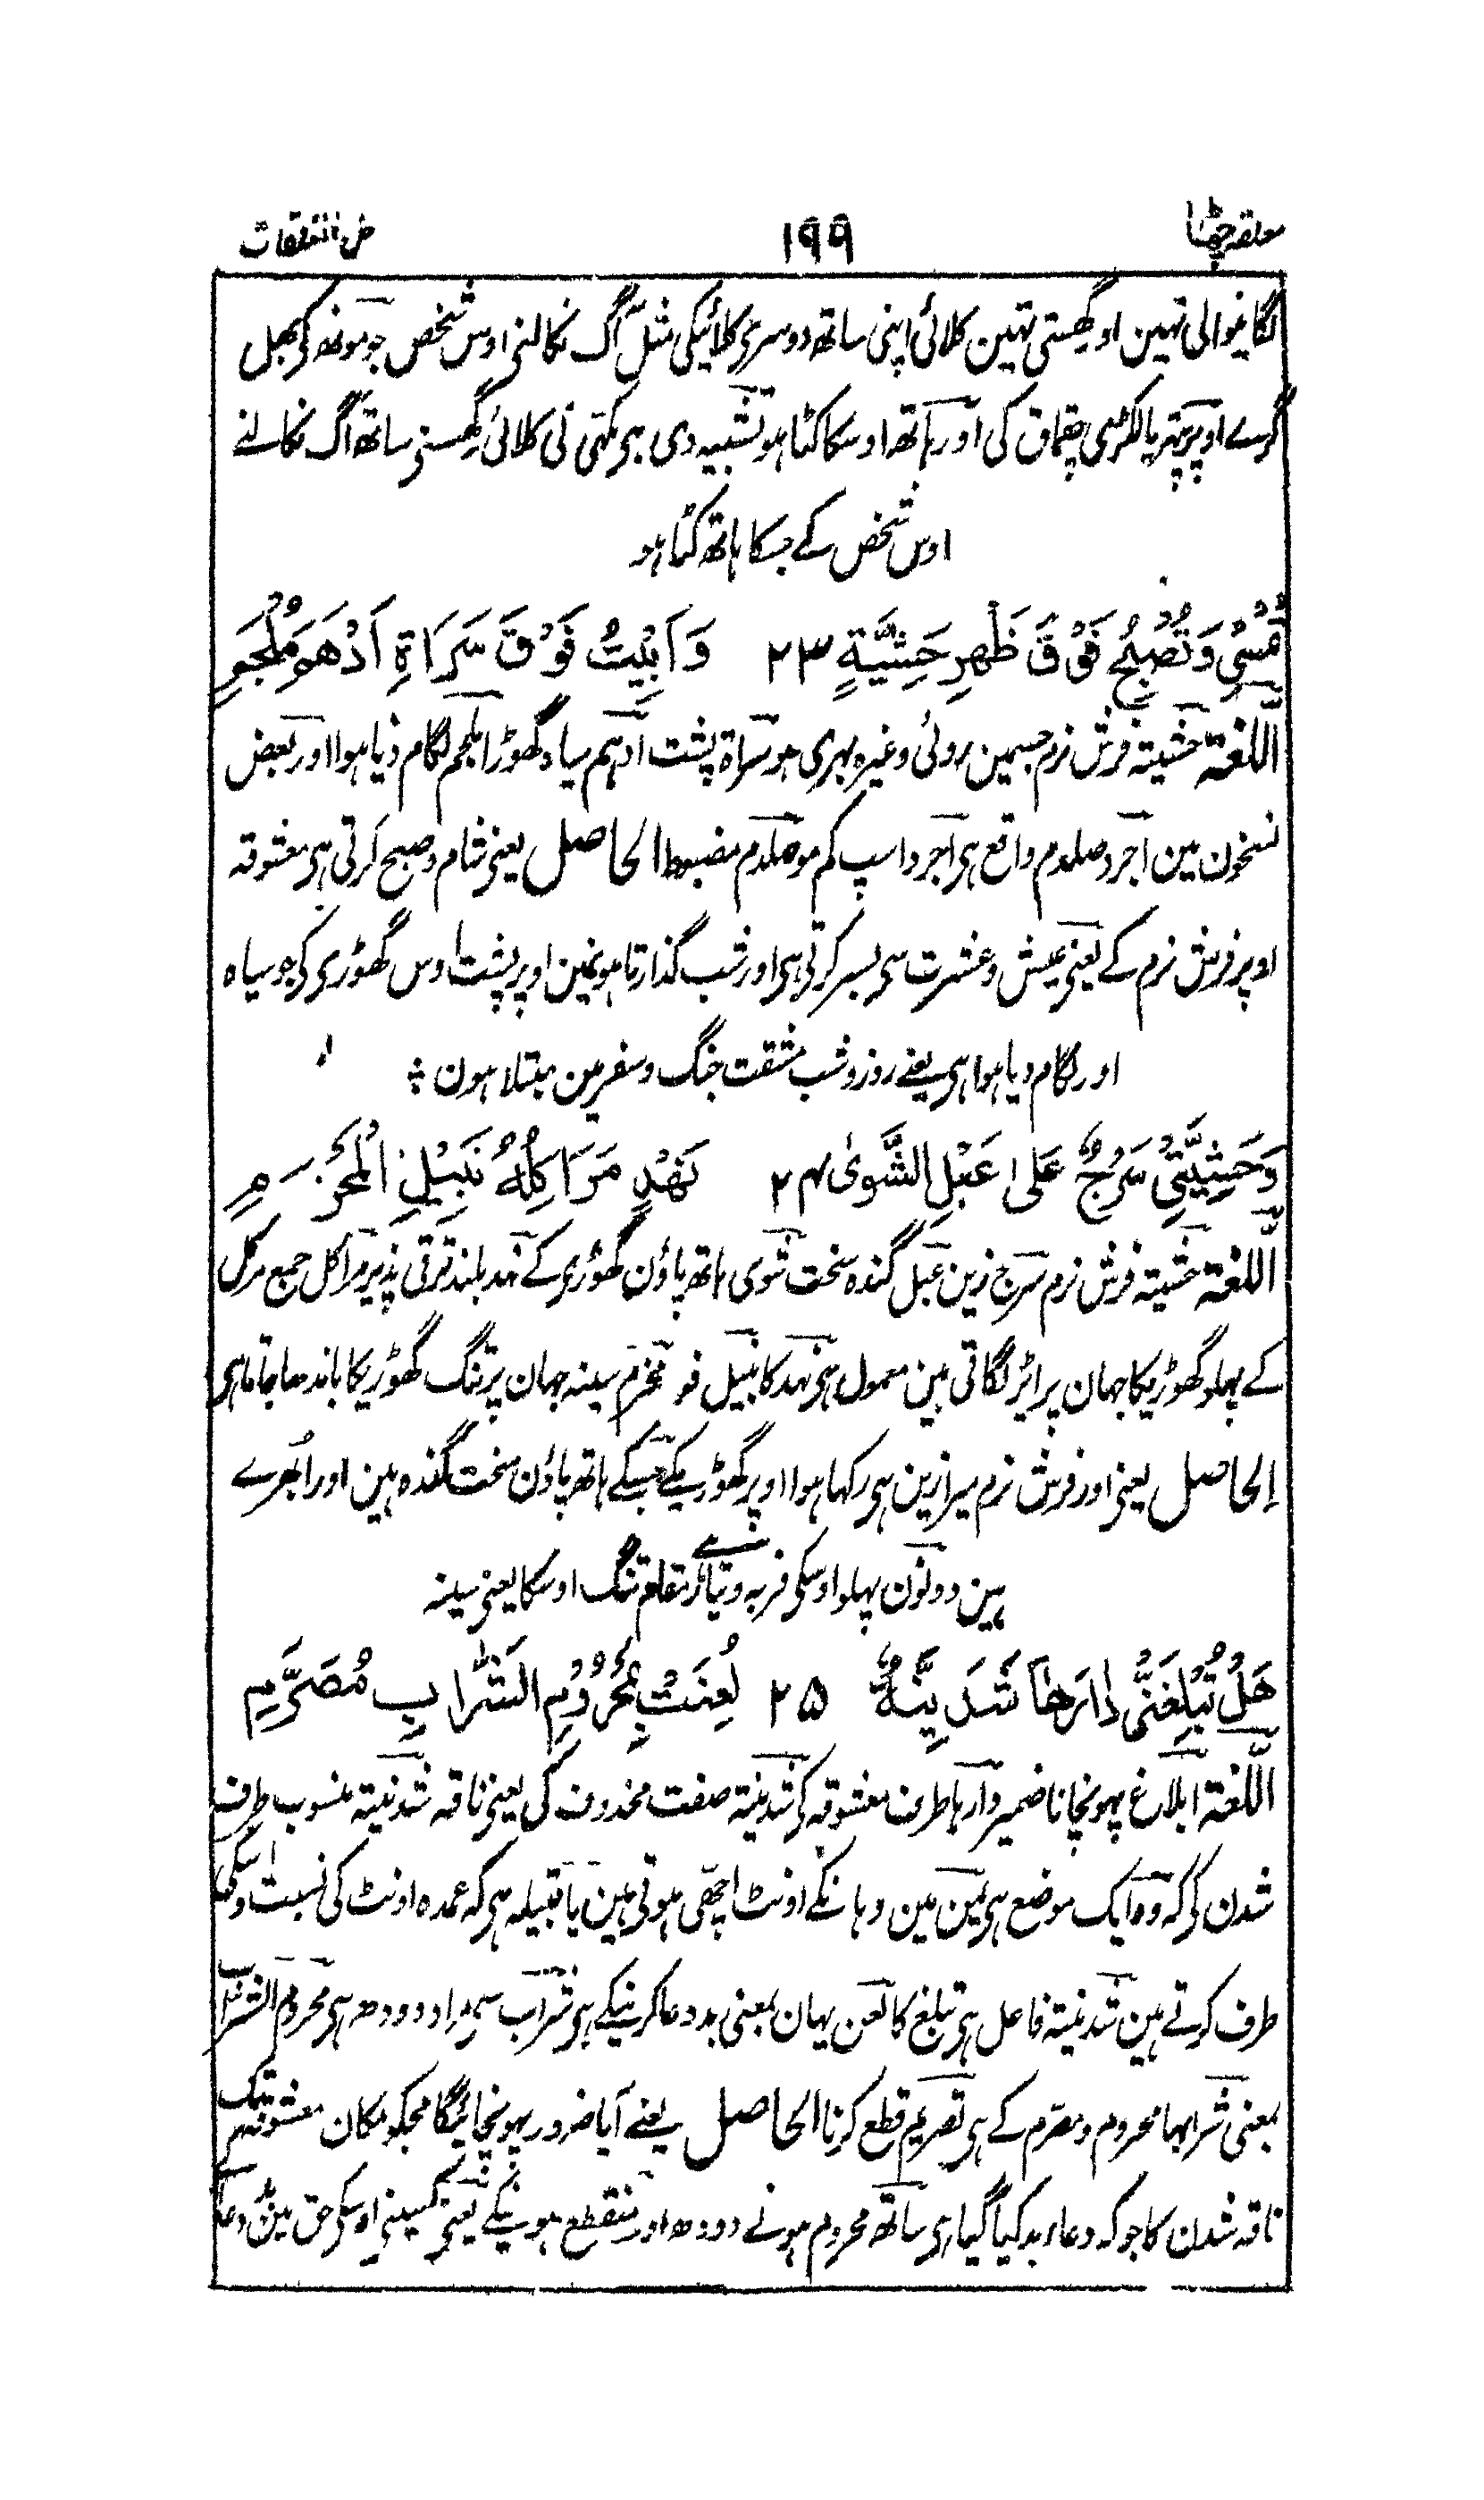 معلقہ چھٹا ۱۹۹ حل التعلقات
لگانیوالی تہین اور گھستی تہین کلائی اپنی ساتھ دوسری کلائیکی مثل آگ نکالنی اوس شخص جو مونھ کی بھل
گرے اوپر پتھر یا لکڑی چقماق کی اور ہاتھ اوسکا کٹا ہو تشبیہ دی ہی مکھی کی کلائی گھسنی ساتھ آگ نکالنے
اوس شخص کے جسکا ہاتھ کٹا ہو
تُمْسِیْ وَتُصْبِحُ فَوْقَ ظَهْرِ حَشِیَّةٍ ۲۳ وَاَبِیْتُ فَوْقَ سَرَاةِ اَدْهَمَ مُلْجَمِ
اللغة حشیتہ فرش نرم جسمین روئی وغیرہ بہری ہو سراة پشت ادہم سیاہ گھوڑا ملجم لگام دیا ہوا اور بعض
نسخون مین اجرد صلدم واقع ہی اجرد اسپ کم مو صلدم مضبوط الحاصل یعنی شام و صبح کرتی ہی معشوقہ
اوپر فرش نرم کے یعنی عیش و عشرت سی بسر کرتی ہی اور شب گذارتا ہونمین اوپر پشت اوس گھوڑی کی جو سیاہ
اور لگام دیا ہوا ہی یعنے روز و شب مشقت جنگ و سفر مین مبتلا ہون ؞
وَحَشِیَّتِیْ سَرْجٌ عَلٰی عَبْلِ الشَّوٰی ۲۴ نَهْدٍ مَرَاکِلُهٗ نَبِیْلِ الْمَحْزَمِ
اللغة حشیتہ فرش نرم سرج زین عبل گندہ سخت شوی ہاتھ پاؤن گھوڑی کے نہد بلند ترقی پذیر مراکل جمع مرکل
کے پہلو گھوڑیکا جہان پر ایڑ لگاتی ہین معمول ہی نہد کا نبیل فر محزم سینہ جہان پر تنگ گھوڑیکا باندھا جاتا ہی
الحاصل یعنی اور فرش نرم میرا زین ہی رکھا ہوا اوپر گھوڑیکے جسکے ہاتھ پاؤن سخت گندہ ہین اور ابھرے
ہین دونون پہلو اوسکی فربہ و تیار ہی مقام تنگ اوسکا یعنی سینہ
هَلْ تُبْلِغَنِّیْ دَارَهَا شَدَنِیَّةٌ ۲۵ لُعِنَتْ بِمَحْرُوْمِ الشَّرَابِ مُصَرَّمِ
اللغة ابلاغ پہونچانا ضمیر دارہا طرف معشوقہ کی شدنیة صفت محذوف کی یعنی ناقہ شدنیة منسوب طرف
شدن کی کہ وہ ایک موضع ہی یمن مین وہانکے اونٹ اچھی ہوتی ہین یا قبیلہ ہی کہ عمدہ اونٹ کی نسبت اوسکی
طرف کرتے ہین شدنیة فاعل ہی تبلغ کا لعن یہان بمعنی بددعا کرنیکے ہی شراب سی مراد دودھ ہی محروم الشراب
بمعنی شرابہا محروم و مصرم کے ہی تصریم قطع کرنا الحاصل یعنے آیا ضرور پہونچائیگا مجکو مکان معشوقہ تک
ناقہ شدن کا جو کہ دعاء بد کیا گیا ہی ساتھ محروم ہونے دودھ اور منقطع ہونیکے یعنی کسینے اوسکی حق مین دعا